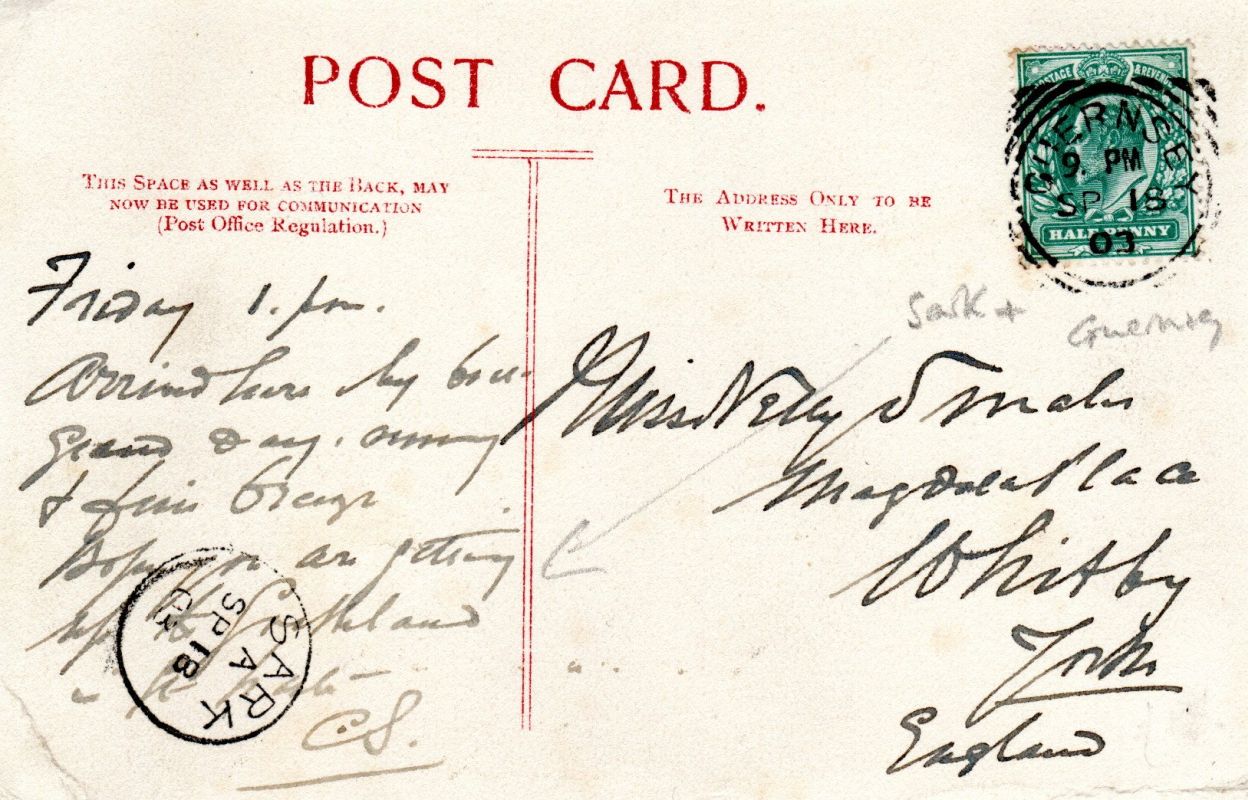 POST CARD.
THIS SPACE AS WELL AS THE BACK, MAY
NOW BE USED FOR COMMUNICATION
(Post Office Regulation.)
THE ADDRESS ONLY TO BE
WRITTEN HERE.
POSTAGE & REVENUE
HALFPENNY
GUERNSEY
9. PM
SP 18
03
Sark +
Guernsey
Friday 1. pm.
Arrived here by
Grand Day. sunny
+ fine breeze
Hope you are getting
up to
C.S.
SARK
A
SP 18
03
Miss Netty
Place
Whitby
Yorks
England